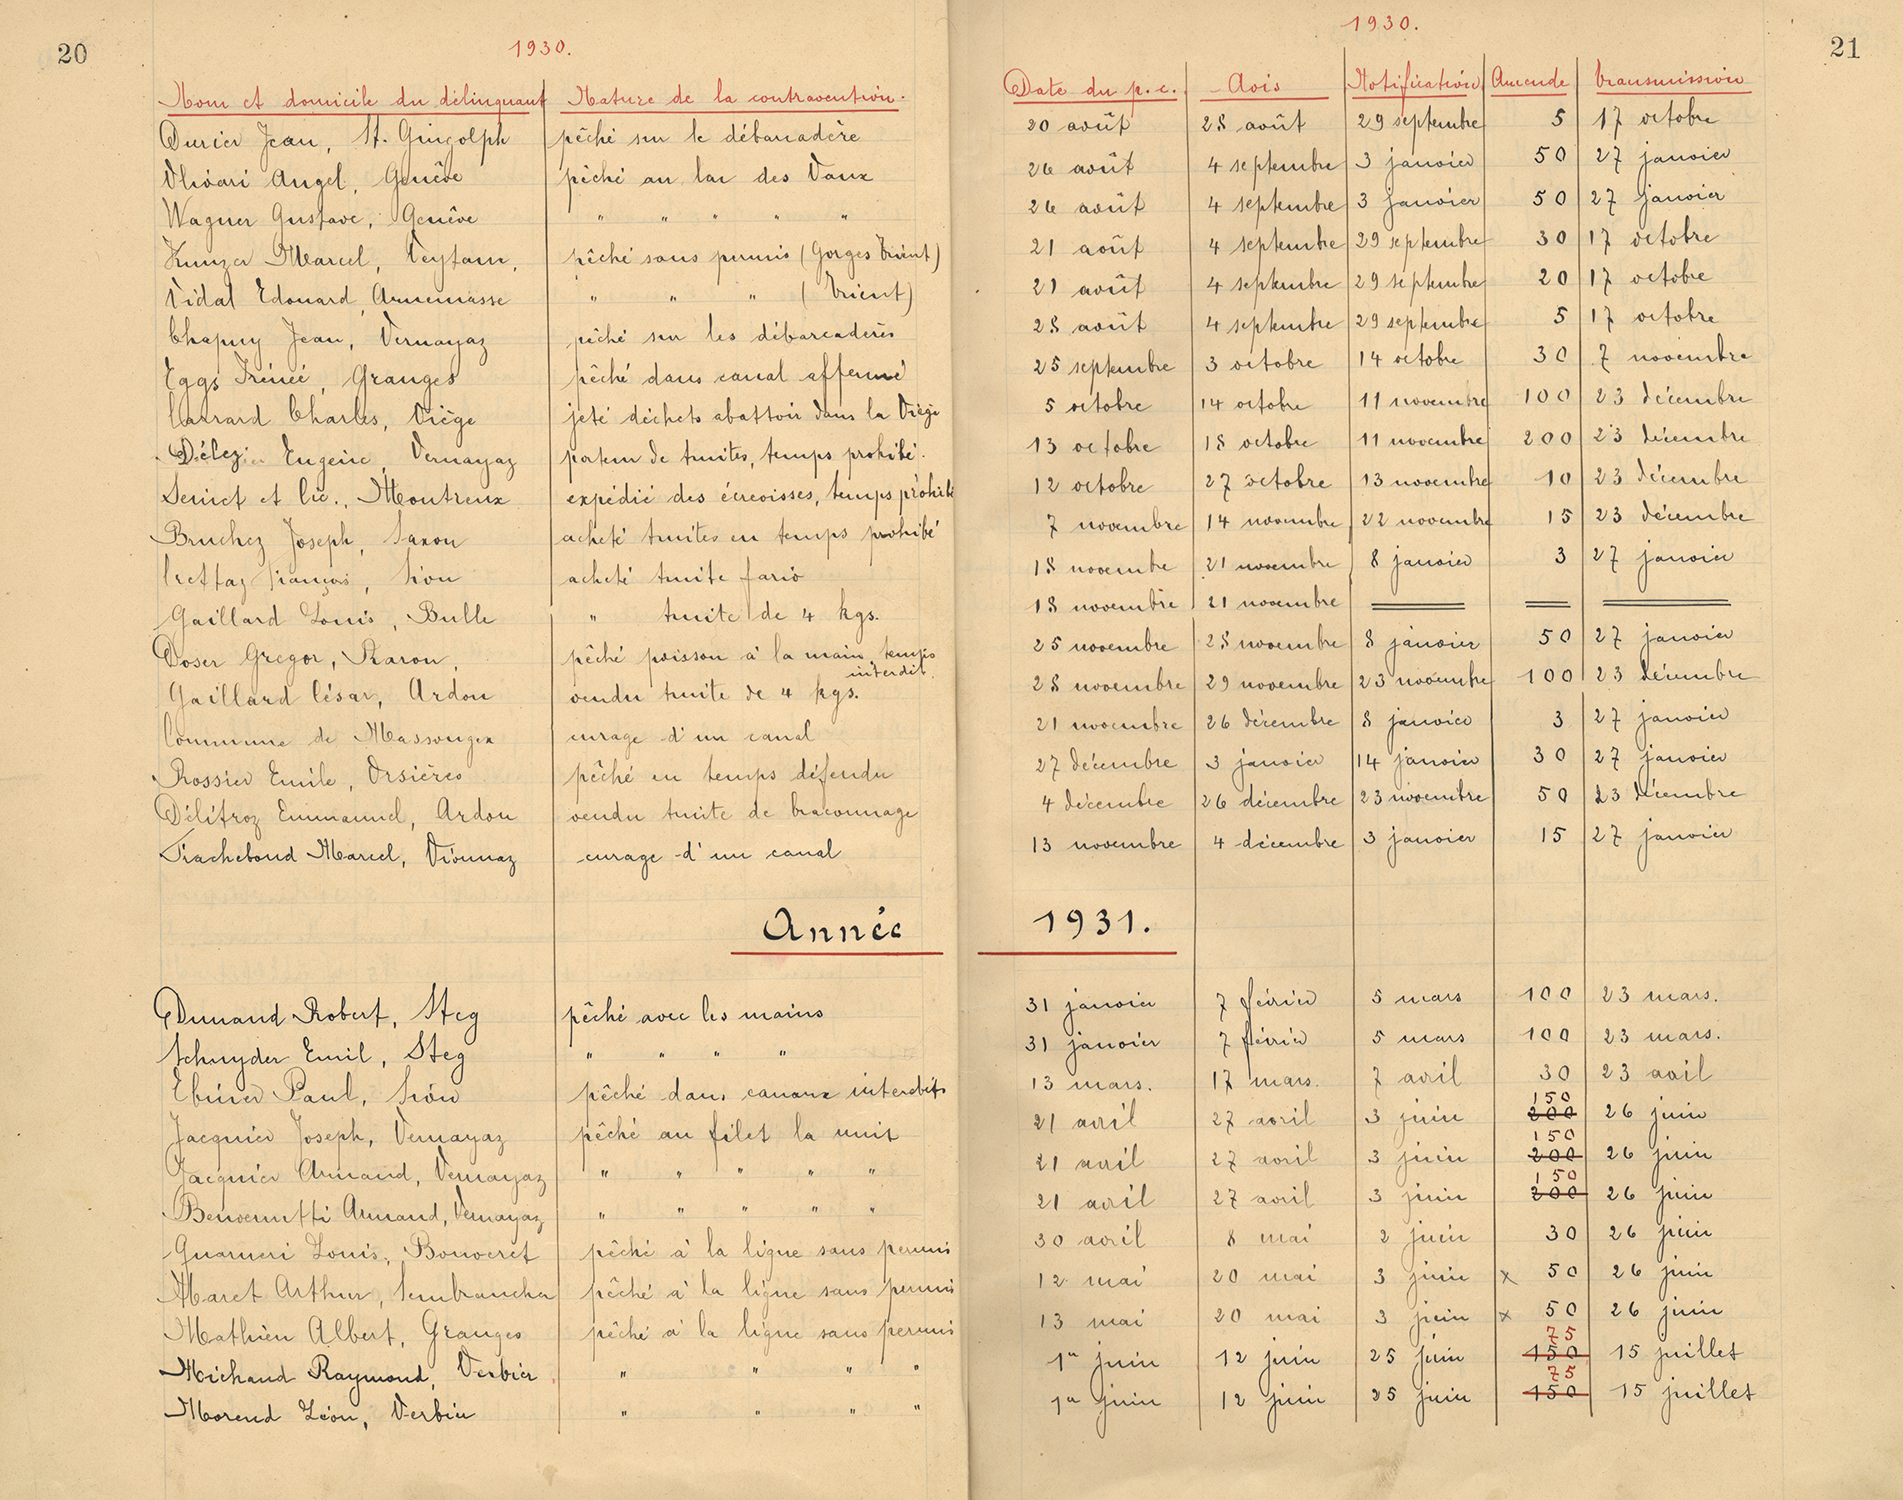 20
1930.
1930.
21
Nom et domicile du délinquant Nature de la contravention. Date du p.c. Avis Notification Amende transmission
Durier Jean, St. Gingolph pêché sur le débarcadère 20 août 28 août 29 septembre 5 17 octobre
Olivari Angel, Genève pêché au lac des Vaux 26 août 4 septembre 3 janvier 50 27 janvier
Wagner Gustave, Genève " " " " " 26 août 4 septembre 3 janvier 50 27 janvier
Kunzer Marcel, Veytaux, pêché sans permis (Gorges Trient) 21 août 4 septembre 29 septembre 30 17 octobre
Vidal Edouard, Annemasse " " " (Trient) 21 août 4 septembre 29 septembre 20 17 octobre
Chapuy Jean, Vernayaz pêché sur les débarcadères 28 août 4 septembre 29 septembre 5 17 octobre
Eggs Irénée, Granges pêché dans canal affermé 25 septembre 3 octobre 14 octobre 30 7 novembre
Carrard Charles, Viège jeté déchets abattoir dans la Viège 5 octobre 14 octobre 11 novembre 100 23 décembre
Délez Eugène, Vernayaz porteur de truites, temps prohibé. 13 octobre 18 octobre 11 novembre 200 23 décembre
et Cie., Montreux expédié des écrevisses, temps prohibé 12 octobre 27 octobre 13 novembre 10 23 décembre
Bruchez Joseph, Saxon acheté truites en temps prohibé 7 novembre 14 novembre 22 novembre 15 23 décembre
Crettaz François, Sion acheté truite fario 18 novembre 21 novembre 8 janvier 3 27 janvier
Gaillard Louis, Bulle " truite de 4 kgs. 18 novembre 21 novembre
Doser Gregor, Raron, pêché poisson à la main, temps 25 novembre 28 novembre 8 janvier 50 27 janvier
interdit.
Gaillard César, Ardon vendu truite de 4 kgs. 28 novembre 29 novembre 23 novembre 100 23 décembre
Commune de Massongex curage d'un canal 21 novembre 26 décembre 8 janvier 3 27 janvier
Rossier Emile, Orsières pêché en temps défendu 27 décembre 3 janvier 14 janvier 30 27 janvier
Délitroz Emmanuel, Ardon vendu truite de braconnage 4 décembre 26 décembre 23 novembre 50 23 décembre
Fracheboud Marcel, Vionnaz curage d'un canal 13 novembre 4 décembre 3 janvier 15 27 janvier
Année 1931.
Dunand Robert, Steg pêché avec les mains 31 janvier 7 février 5 mars 100 23 mars.
Schnyder Emil, Steg " " " " 31 janvier 7 février 5 mars 100 23 mars.
Ebiner Paul, Sion pêché dans canaux interdits 13 mars. 17 mars. 7 avril 30 23 avril
150
Jacquier Joseph, Vernayaz pêché au filet la nuit 21 avril 27 avril 3 juin 200 26 juin
150
Jacquier Armand, Vernayaz " " " " " 21 avril 27 avril 3 juin 200 26 juin
150
Benvenutti Armand, Vernayaz " " " " " 21 avril 27 avril 3 juin 200 26 juin
Guarneri Louis, Bouveret pêché à la ligne sans permis 30 avril 8 mai 2 juin 30 26 juin
Maret Arthur, Sembrancher pêché à la ligne sans permis 12 mai 20 mai 3 juin x 50 26 juin
Mathieu Albert, Granges pêché à la ligne sans permis 13 mai 20 mai 3 juin x 50 26 juin
75
Michaud Raymond, Verbier " " " " 1er juin 12 juin 25 juin 150 15 juillet
75
Morend Léon, Verbier " " " " 1er juin 12 juin 25 juin 150 15 juillet